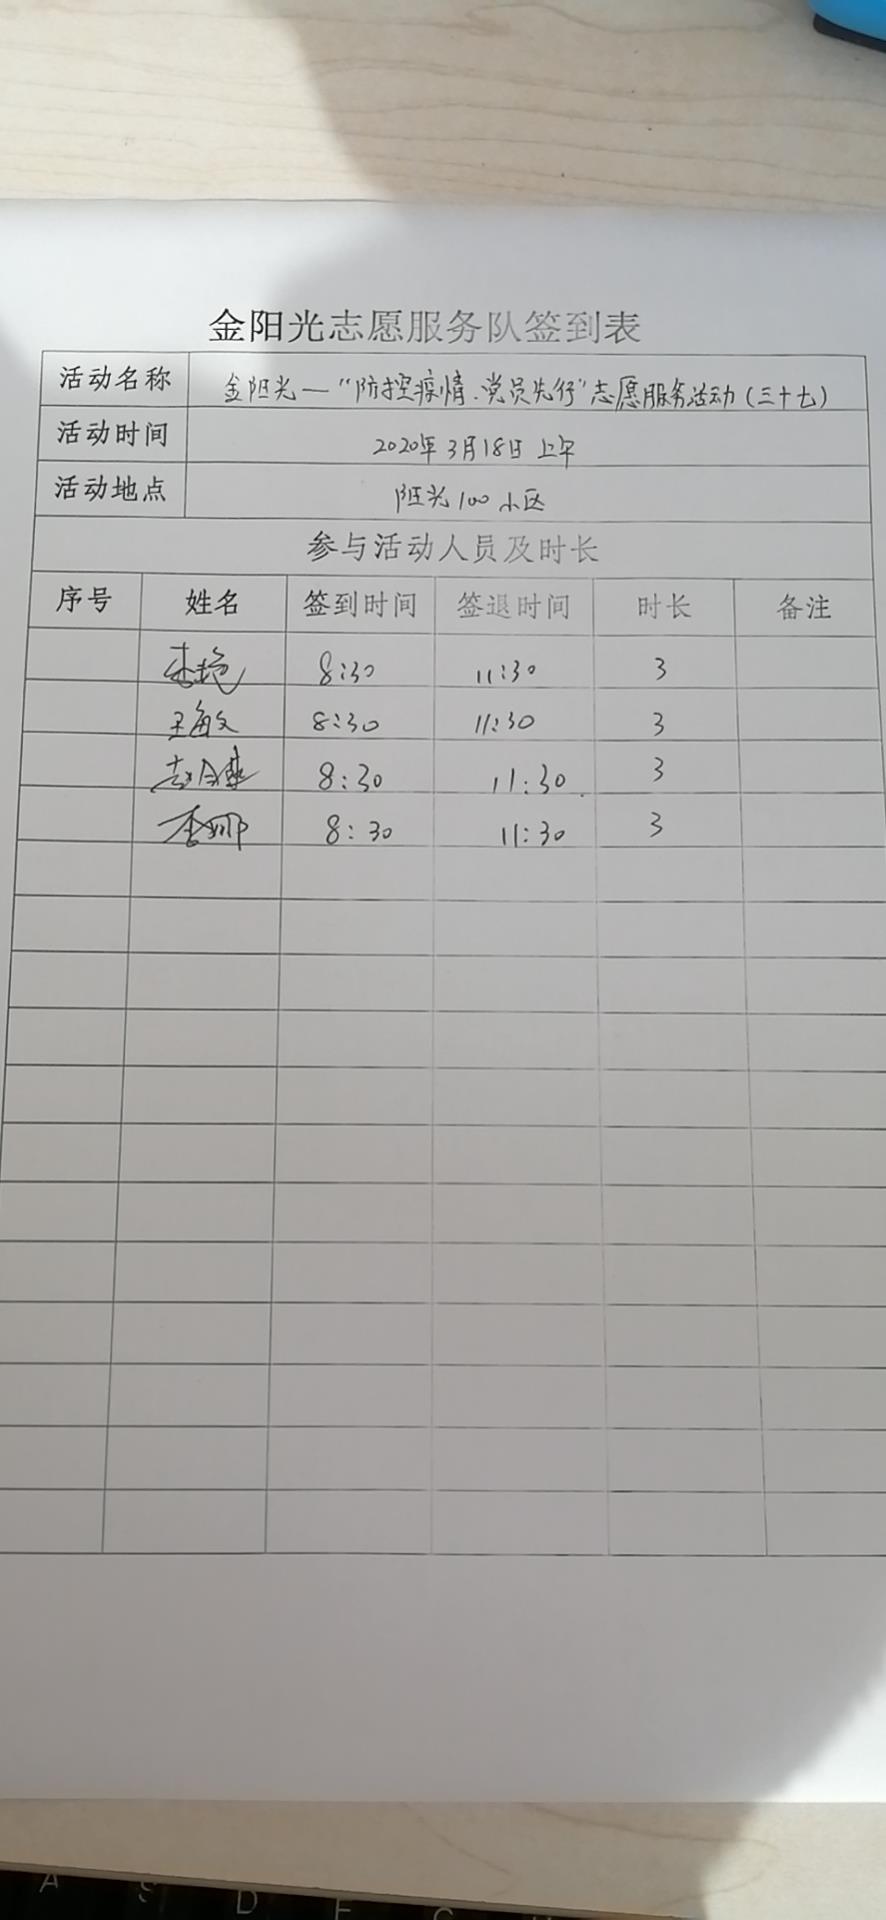 金阳光志愿服务队签到表
活动名称 金阳光—“防控疫情、党员先行”志愿服务活动(三十七)
活动时间 2020年3月18日 上午
活动地点 阳光100小区
参与活动人员及时长
序号 姓名 签到时间 签退时间 时长 备注
8:30 11:30 3
王敏 8:30 11:30 3
8:30 11:30 3
李娜 8:30 11:30 3
A S D F G